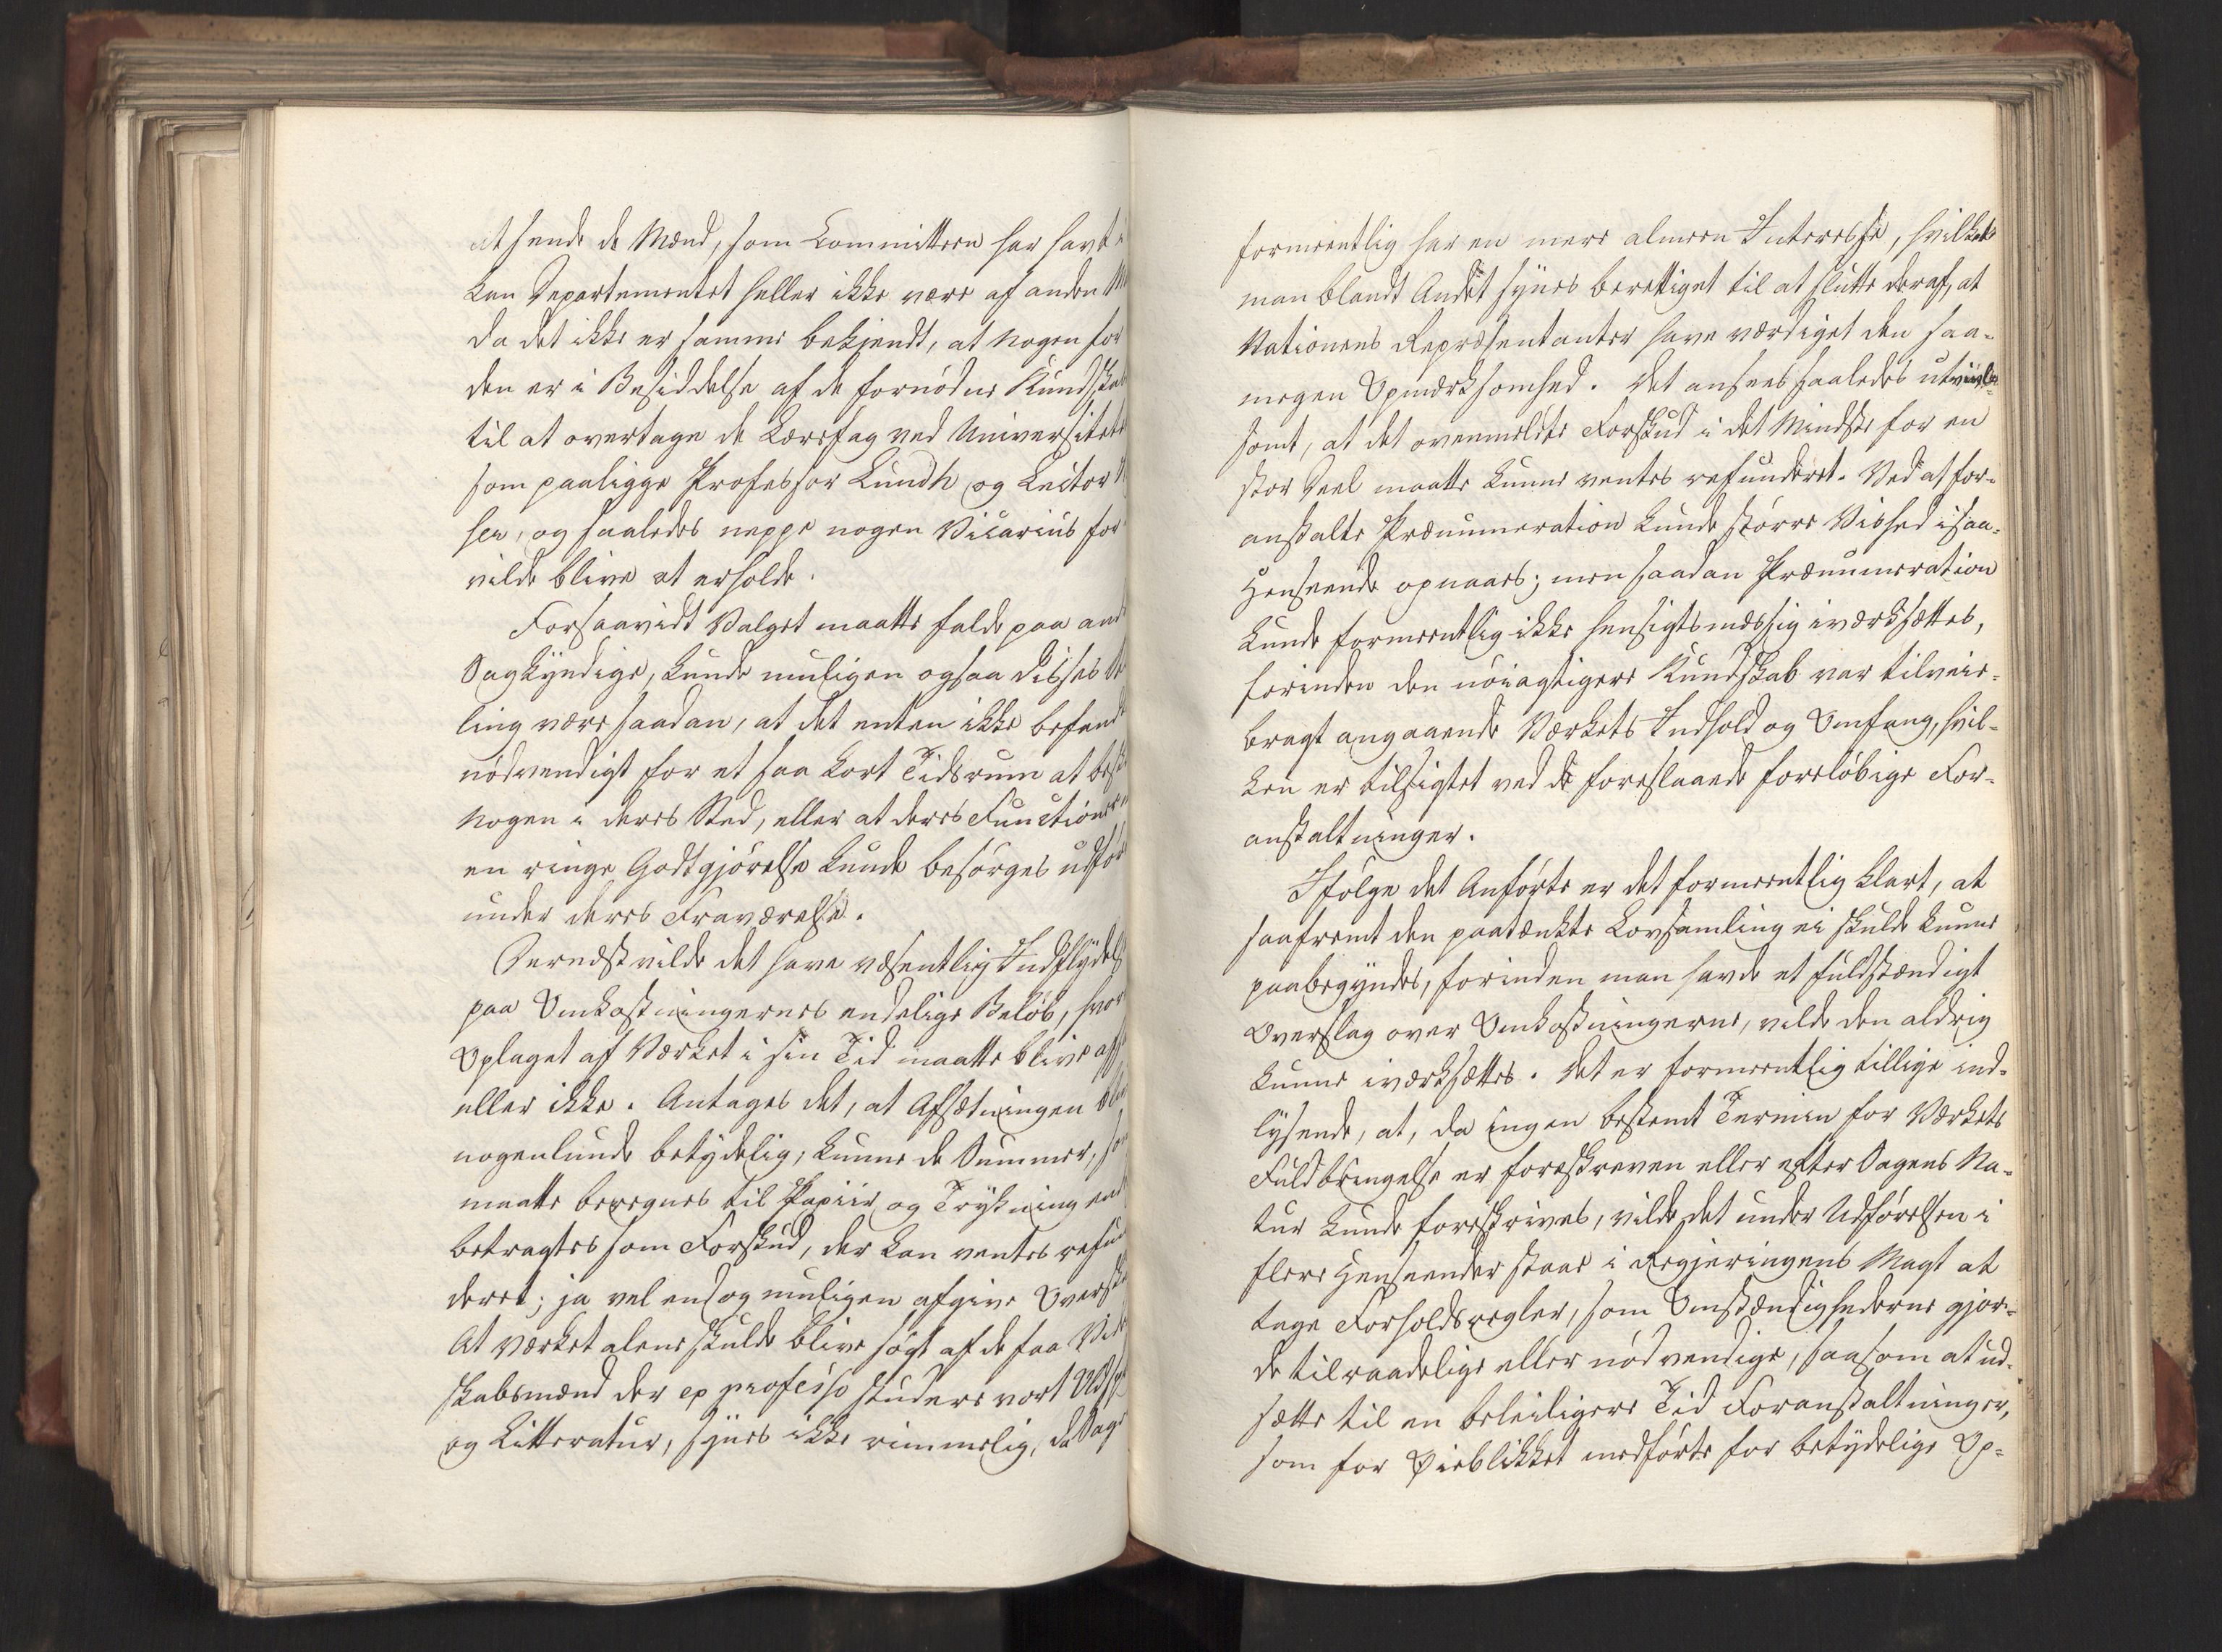 at sende de Mænd, som Committeen har havt i
kan Departementet heller ikke være af anden
da det ikke er samme bekjendt, at Nogen for
den er i Besiddelse af de fornødne Kundskab
til at overtage de Lærefag ved Universitete
som paaligge Professor Lundh og Lector
sen, og saaledes neppe nogen Vicarius for
vilde blive at erholde.
Forsaavidt Valget maatte falde paa and
Sagkyndige, kunde muligen ogsaa disses
ling være saadan, at det enten ikke befand
nødvendigt for et saa kort Tidsrum at
Nogen i deres Sted, eller at deres Functioner
en ringe Godtgjørelse kunde besørges udfør
under deres Fraværelse.
Dernæst vilde det have væsentlig Indflydels
paa Omkostningernes endelige Beløb, hvor
Oplaget af Værket i sin Tid maatte blive
eller ikke. Antages det, at Afsætningen
nogenlunde betydelig, kunne de Summer, som
maatte beregnes til Papiir og Trykning
betragtes som Forskud, der kan ventes refun
deret; ja vel endog muligen afgive Oversku
At Værket alene skulde blive søgt af de faa Vide
skabsmænd der ex professo studere vort
og Litteratur, synes ikke rimmelig, da Sag
formeentlig har en mere almeen Interesse, hvilket
man blandt Andet synes berettiget til at slutte deraf, at
Nationens Repræsentanter have værdiget den saa-
megen Opmærksomhed. Det ansees saaledes utvivl-
somt, at det ovenmeldte Forskud i det Mindste for en
stor Deel maatte kunne ventes refunderet. Ved at for-
anstalte Prænumeration kunde større Vished i saa-
Henseende opnaaes; men saadan Prænumeration
kunde formeentlig ikke hensigtsmæssig iværksættes,
forinden den nøiagtigere Kundskab var tilveie-
bragt angaaende Værkets Indhold og Omfang, hvil-
ken er tilsigtet ved de foreslaaede foreløbige For-
anstaltninger.
Ifølge det Anførte er det formeentlig klart, at
saafremt den paatænkte Lovsamling ei skulde kunne
paabegyndes, forinden man havde et fuldstændigt
Overslag over Omkostningerne, vilde den aldrig
kunne iværksættes. Det er formeentlig tillige ind-
lysende, at, da ingen bestemt Termin for Værkets
Fuldbringelse er foreskreven eller efter Sagens Na-
tur kunde foreskrives, vilde det under Udførelsen i
flere Henseender staae i Regjeringens Magt at
tage Forholdsregler, som Omstændighederne gjor-
de tilraadelige eller nødvendige, saasom at ud-
sætte til en beleiligere Tid Foranstaltninger,
som for Øieblikket medførte for betydelige Op-